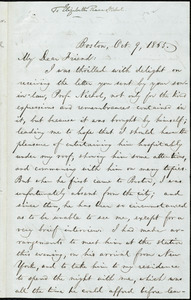 To Elizabeth Pease Nichol
Boston, Oct. 9, 1865.
My Dear Friend:
I was thrilled with delight on
receiving the letter you sent by your son-
in-law, Prof. Nichol, not only for the kind
expressions and remembrances contained in
it, but because it was brought by himself;
leading me to hope that I should have the
pleasure of entertaining him hospitably
under my roof, showing him some attentions,
and communing with him on many topics.
And when he first came to State, I was
unfortunately absent from the city, and
since then, he has been so circumstanced
as to be unable to see me, except for a
very brief interview. I had made ar-
rangements to meet him at the station
this evening, on his arrival from New
York, and to take him to my residence
to spend the night with me, which was
all the time he could afford before leav-